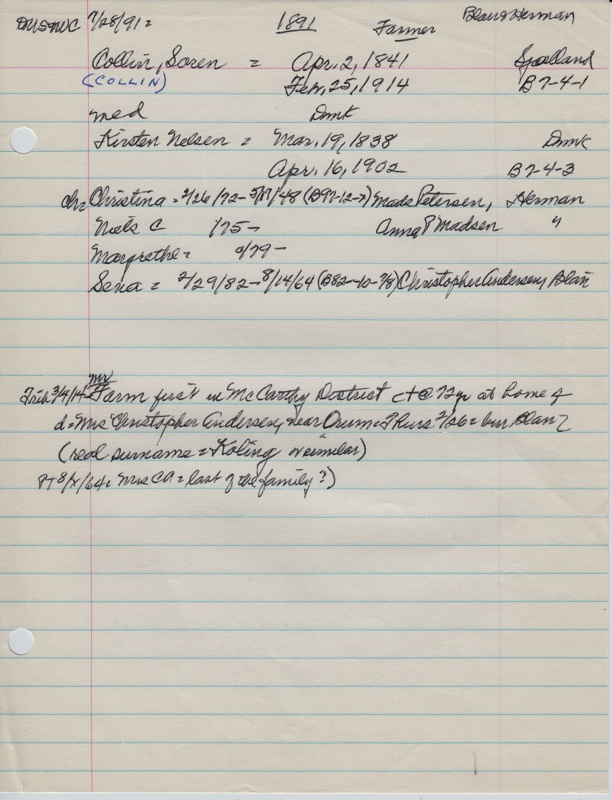 7/28/91 = 1891 Farmer Blair & Herman
Collin, Soren = Apr. 2, 1841 Sjælland
(COLLIN) Feb. 25, 1914 B7-4-1
med Dmk
Kirsten Nelsen = Mar. 19, 1838 Dmk
Apr. 16, 1902 B7-4-3
ch = Christina = 2/26/72 - /48 (B97-12-7) Mads Petersen, Herman
Niels C /75 - Anna P Madsen "
Margrethe = 9/79 -
Sena = 2/29/82 - 8/14/64 (B82-10-7/8) Christopher Andersen, Blair
mr
Trib 3/4/14 = Farm first in McCarthy District et @ 72 yr at home of
d = Mrs Christopher Andersen, near Orum = Thurs 2/26 = bur Blair
(real surname = Koling or similar)
PT 8/ /64 = Mrs CA = last of the family?)